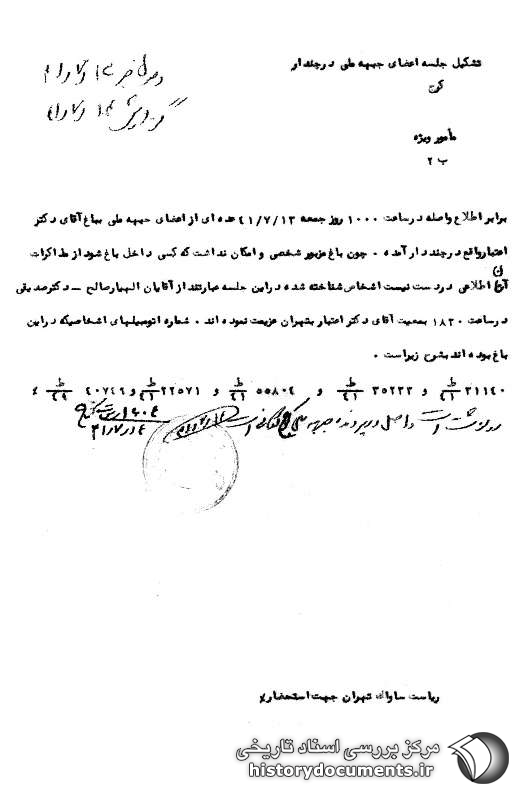 تشکیل جلسه اعضای جبهه ملی درچندار
کرج
وصول خبر ۱۳ر۷ر۴۱
گزارش ۱۴ر۷ر۴۱
مأمور ویژه
ب ۲
برابر اطلاع واصله درساعت ۱۰۰۰ روز جمعه ۴۱/۷/۱۳ عده ای از اعضای جبهه ملی بباغ آقای دکتر
اعتبار واقع در چندار آمده ۰ چون باغ مزبور شخصی و امکان نداشت که کسی داخل باغ شود از مذاکرات
آن اطلاعی در دست نیست اشخاص شناخته شده در این جلسه عبارتند از آقایان الهیار صالح – دکتر صدیقی
درساعت ۱۸۳۰ بمعیت آقای دکتر اعتبار بتهران عزیمت نموده اند ۰ شماره اتومبیلهای اشخاصیکه دراین
باغ بوده اند بشرح زیر است ۰
۳۱۱۴۰ ط/۴۱ و ۳۵۲۳۳ ط/۴۱ و ۵۵۸۰۴ ط/۴۱ و ۲۲۵۷۱ ط/۴۱ و ۲۰۷۴۶ ط/۴۹
رونوشت است و اصل در پرونده جبهه ملی
۱۴ر۷ر۴۱
ریاست ساواک تهران جهت استحضار
مرکز بررسی اسناد تاریخی
historydocuments.ir